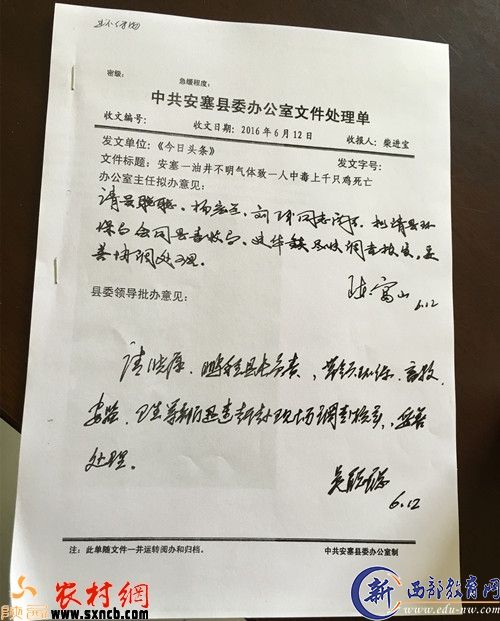 密级：
急缓程度：
中共安塞县委办公室文件处理单
收文编号：
收文日期：2016年6月12日
收报人：柴进宝
发文单位：《今日头条》
发文字号：
文件标题：安塞一油井不明气体致一人中毒上千只鸡死亡
办公室主任拟办意见：
请吴聪聪、杨宏兰、刘 同志阅示。拟请县环
保局会同县畜牧局、 镇 调查核实，妥
善协调处理。
陈富山
6.12
县委领导批办意见：
请 县长负责，带领环保、畜牧、
安监、卫生等部门迅速赶赴现场调查核实，妥善
处理。
吴聪聪
6.12
注：此单随文件一并运转阅办和归档。
中共安塞县委办公室制
陕西
农村網
www.sxncb.com
新西部教育网
www.edu-nw.com